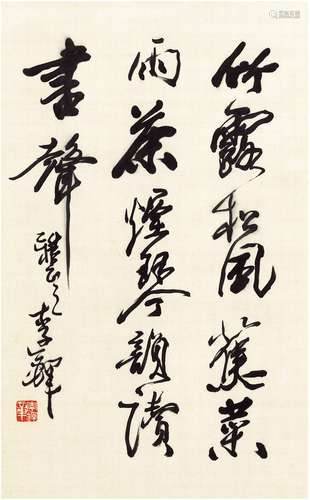 竹露松風蕉葉
雨茶煙琴韻讀
書聲
李鐸